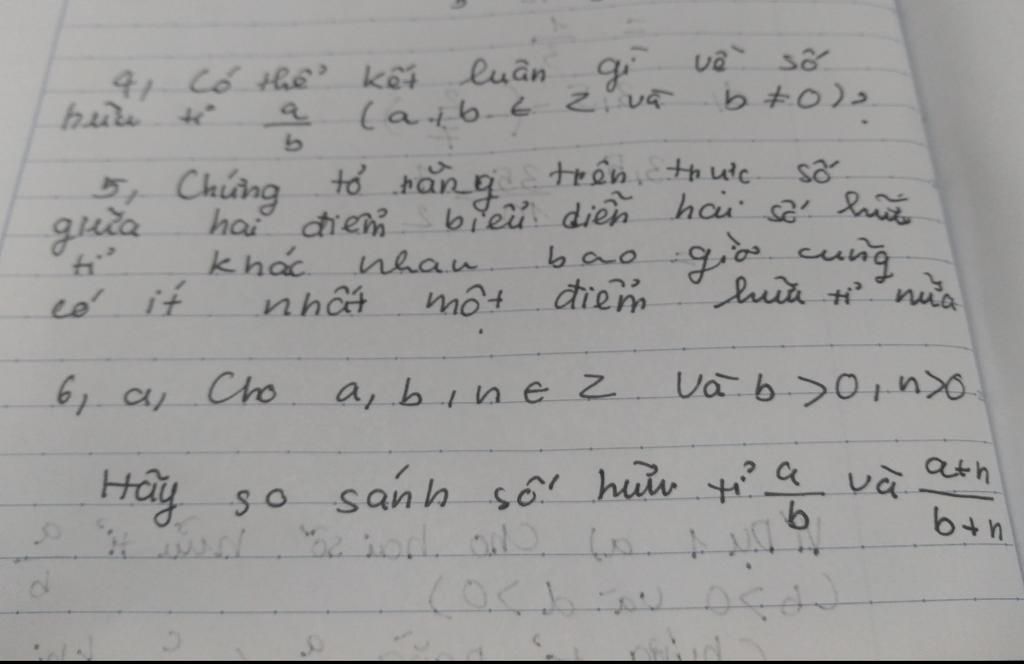 4, Có thể kết luân gì về số
hữu tỉ a/b (a, b ∈ Z, và b ≠ 0)?
5, Chứng tỏ rằng trên trục số
giữa hai điểm biểu diễn hai số hữu
tỉ khác nhau bao giờ cũng
có ít nhất một điểm hữu tỉ nữa
6, a, Cho a, b, n ∈ Z và b > 0, n > 0
Hãy so sánh số hữu tỉ a/b và a+n/b+n